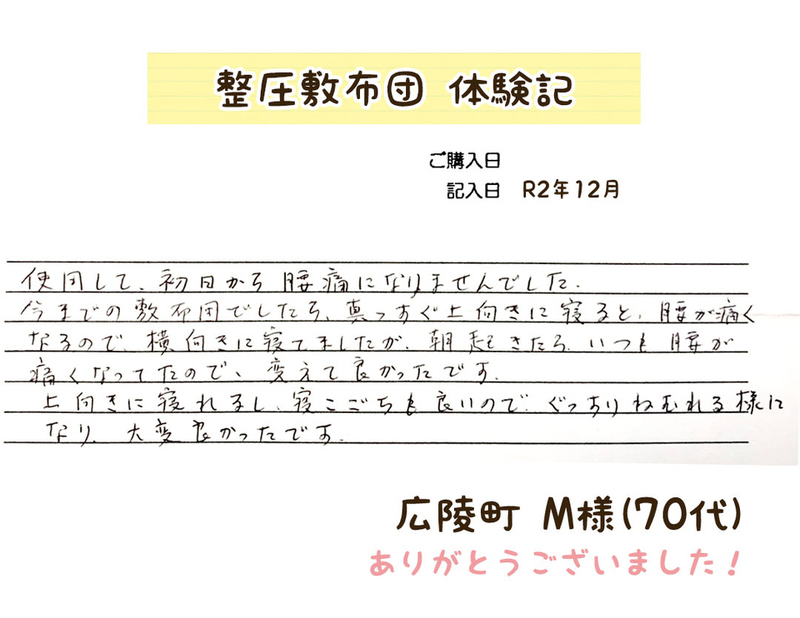 整圧敷布団 体験記
ご購入日
記入日 R2年12月
使用して、初日から腰痛になりませんでした。
今までの敷布団でしたら、真っすぐ上向きに寝ると、腰が痛く
なるので、横向きに寝てましたが、朝起きたら、いつも腰が
痛くなってたので、変えて良かったです。
上向きに寝れるし、寝こごちも良いので、ぐっすりねむれる様に
なり、大変良かったです。
広陵町 M様(70代)
ありがとうございました！